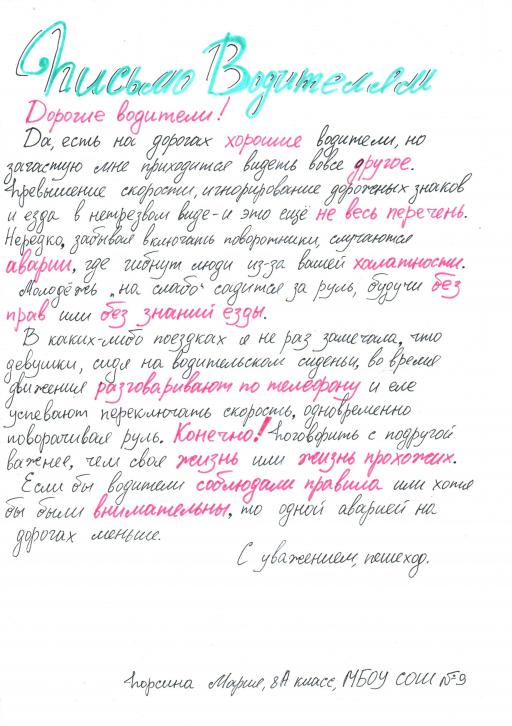 Письмо Водителям
Дорогие водители!
Да, есть на дорогах хорошие водители, но
зачастую мне приходится видеть вовсе другое.
Превышение скорости, игнорирование дорожных знаков
и езда в нетрезвом виде - и это ещё не весь перечень.
Нередко, забывая включать поворотники, случаются
аварии, где гибнут люди из-за вашей халатности.
Молодёжь „на слабо“ садится за руль, будучи без
прав или без знаний езды.
В каких-либо поездках я не раз замечала, что
девушки, сидя на водительском сиденьи, во время
движения разговаривают по телефону и еле
успевают переключать скорость, одновременно
поворачивая руль. Конечно! Поговорить с подругой
важнее, чем своя жизнь или жизнь прохожих.
Если бы водители соблюдали правила или хотя
бы были внимательны, то одной аварией на
дорогах меньше.
С уважением, пешеход.
Порсина Мария, 8А класс, МБОУ СОШ №9